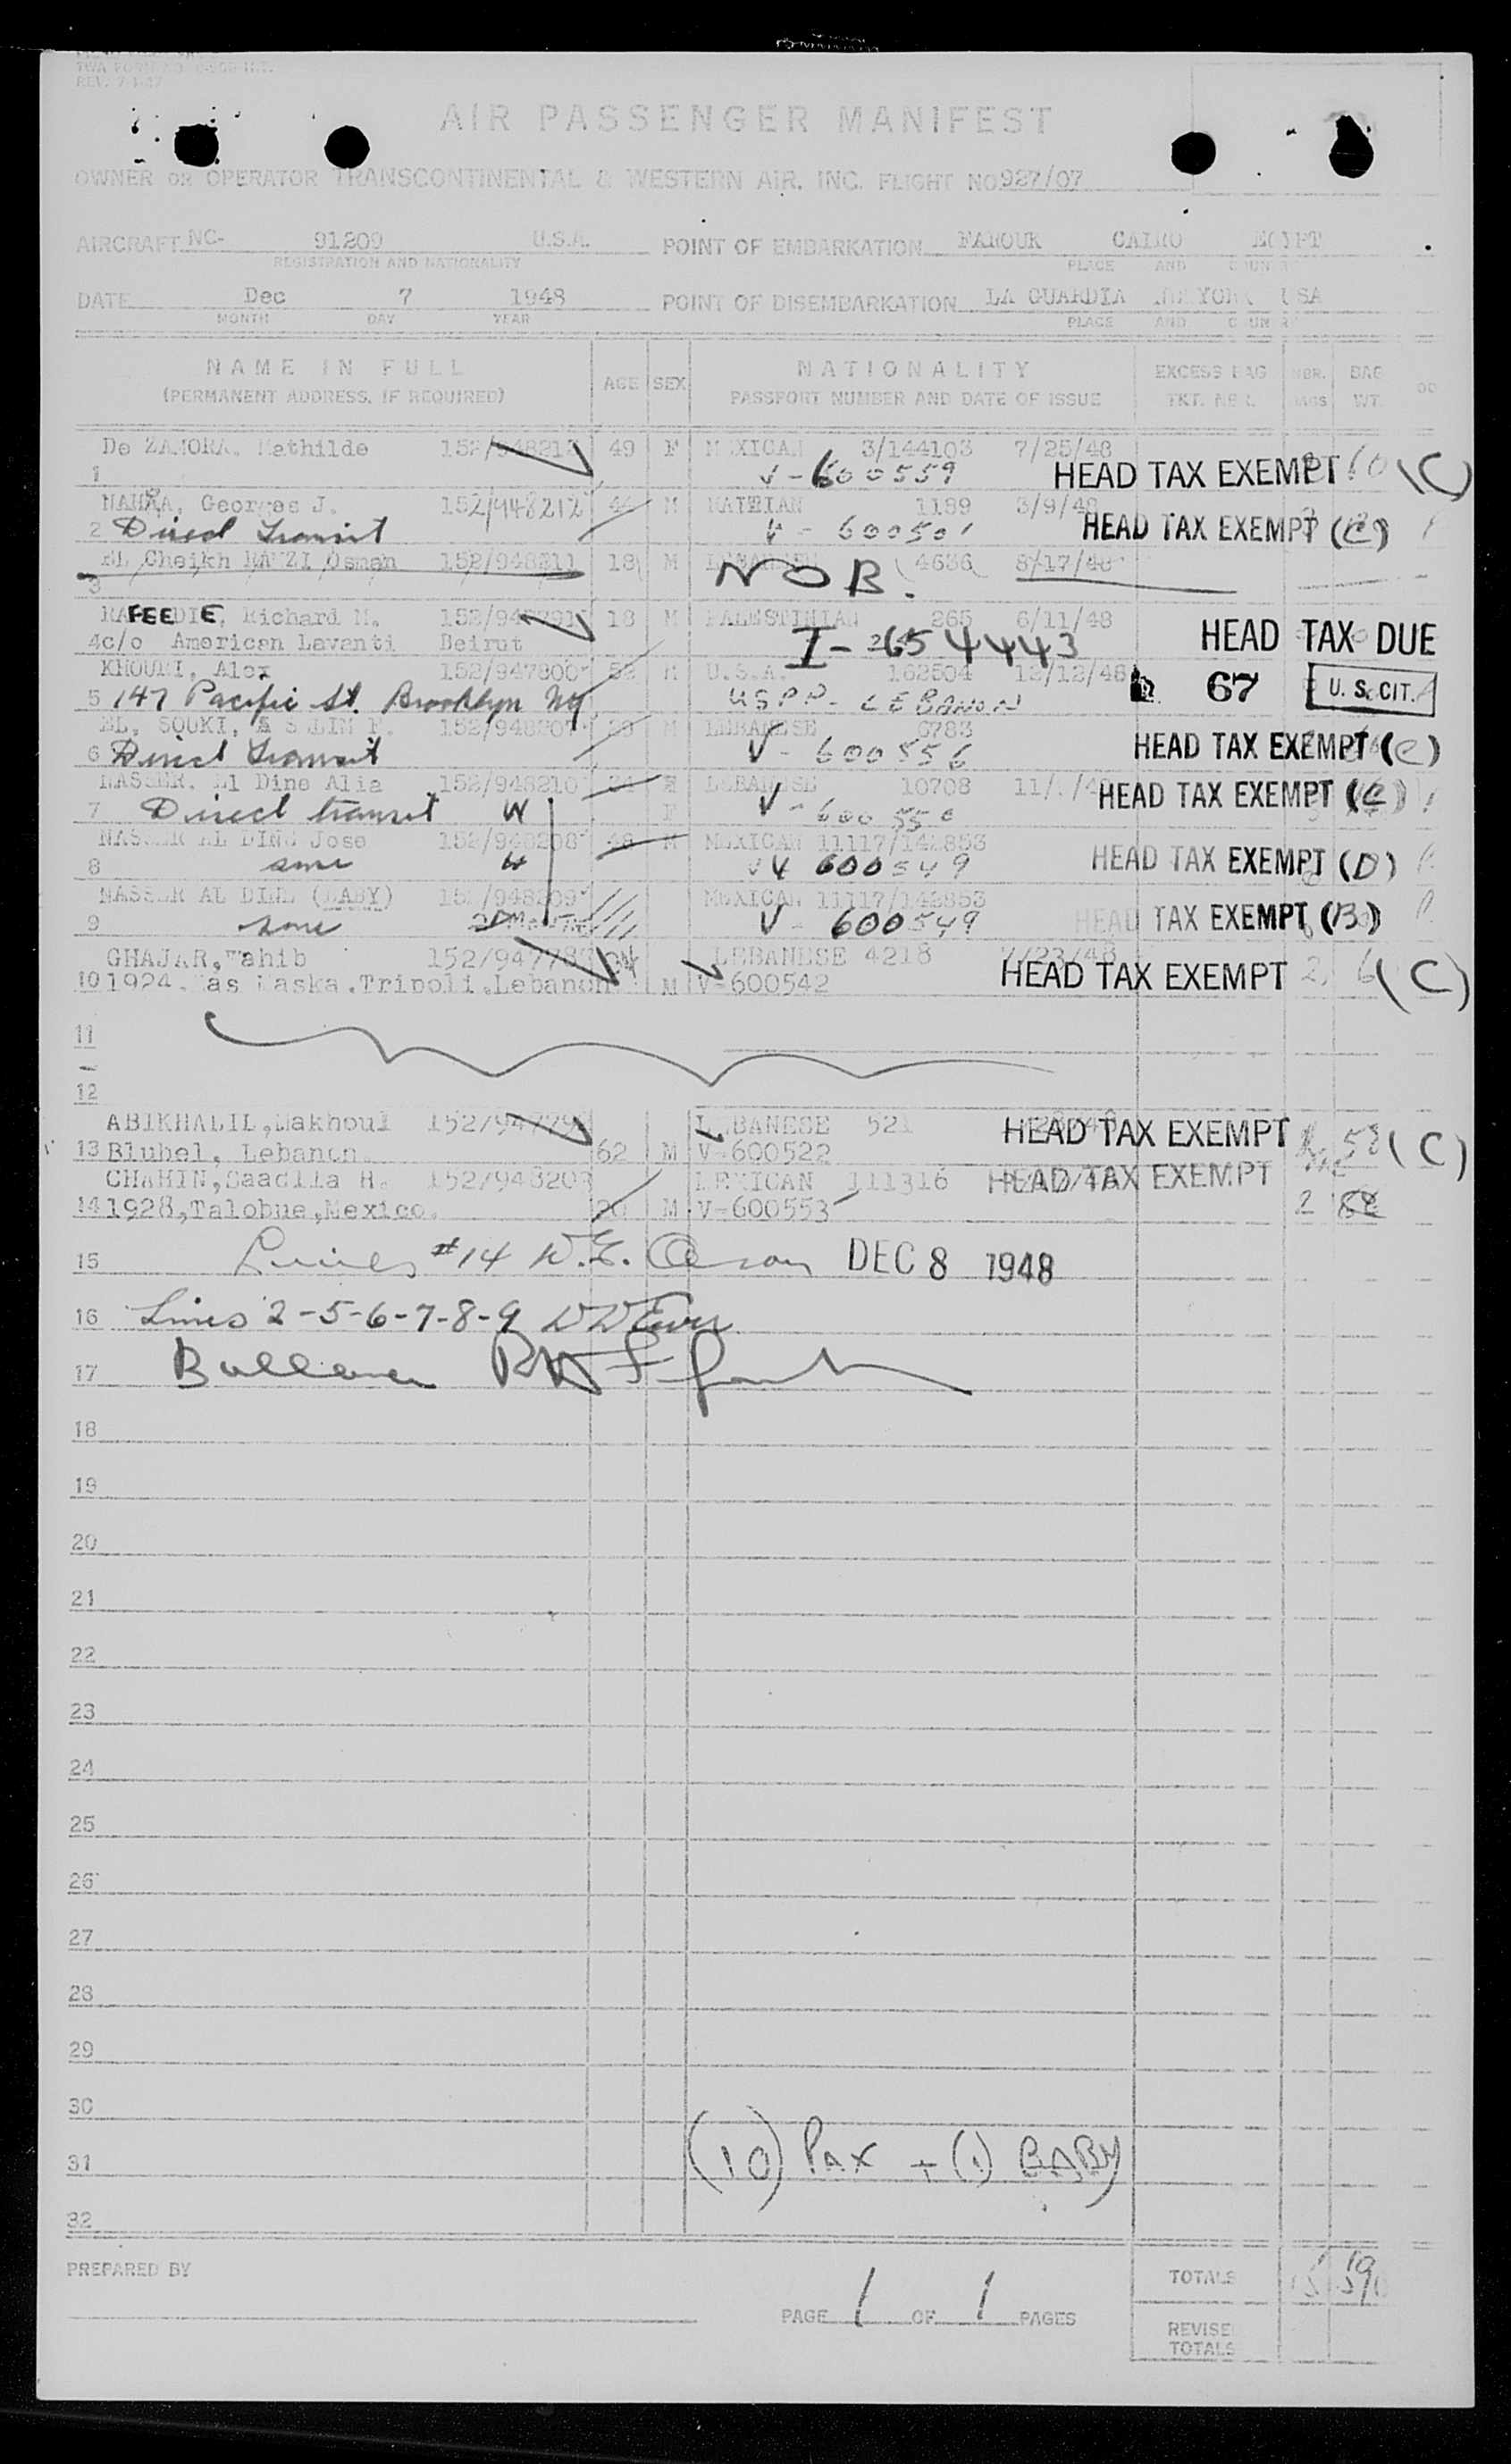 REV. 7-1-47
AIR PASSENGER MANIFEST
OWNER OR OPERATOR TRANSCONTINENTAL & WESTERN AIR. INC. FLIGHT NO 927/07
AIRCRAFT NC- 91209 U.S.A. POINT OF EMBARKATION FAROUK CAIRO EGYPT
REGISTRATION AND NATIONALITY PLACE AND
DATE Dec 7 1948 POINT OF DISEMBARKATION LA GUARDIA USA
MONTH DAY YEAR PLACE AND
NAME IN FULL AGE SEX NATIONALITY EXCESS BAG NBR. BAG
(PERMANENT ADDRESS, IF REQUIRED) PASSPORT NUMBER AND DATE OF ISSUE TKT. WT.
De ZAMORA, Mathilde 49 F MEXICAN 3/144103 7/25/48
1 V-600559 HEAD TAX EXEMPT (C)
Georges J. 152/948212 M 1189 3/9/48
2 Direct Transit HEAD TAX EXEMPT (C)
EL Cheikh RAMZI Osman 152/948211 18 M 4636 8/17/48
3 NOB.
FEEDIE, Richard M. 18 M PALESTINIAN 265 6/11/48
4 c/o American Lavanti Beirut I-2654443 HEAD TAX DUE
KHOURI, Alex 152/947800 M U.S.A. 162504 12/12/48
5 147 Pacific St. Brooklyn NY USPP- LEBANON 67 U. S. CIT.
EL, SOUKI, 152/948207 M LEBANESE 6783
6 Direct Transit V-600556 HEAD TAX EXEMPT (C)
NASSER. El Dine Alia 152/948210 LEBANESE 10708
7 Direct transit W F HEAD TAX EXEMPT (C)
NASSER EL DINE Jose 152/948208 48 M MEXICAN 11117/142853
8 same W V 600549 HEAD TAX EXEMPT (D)
NASSER AL DINE (BABY) 152/948209 MEXICAN 11117/142853
9 same V-600549 HEAD TAX EXEMPT (B)
GHAJAR, Wahib LEBANESE 4218 7/23/48
10 1924. Tripoli.Lebanon M V-600542 HEAD TAX EXEMPT 2 (C)
11
12
ABIKHALIL, Makhoul LEBANESE 521
13 Bluhel, Lebanon 62 M V-600522 HEAD TAX EXEMPT (C)
CHAHIN, Saadlla H. 152/948203 MEXICAN 111316 HEAD TAX EXEMPT
14 1928, Talobue, Mexico. 20 M V-600553 2
15 #14 DEC 8 1948
16 Lines 2-5-6-7-8-9
17
18
19
20
21
22
23
24
25
26
27
28
29
30
31 (10) PAX + (1) BABY
32
PREPARED BY TOTALS
PAGE 1 OF 1 PAGES
REVISED
TOTALS